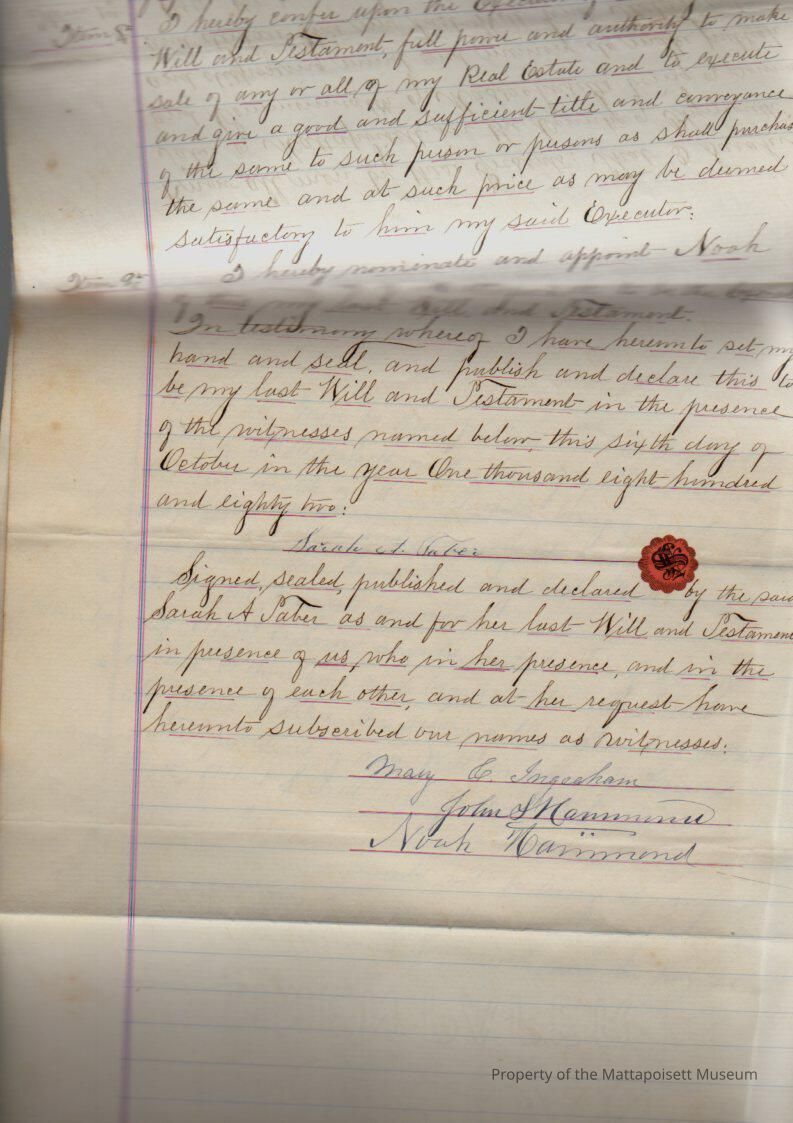 Item 8th
I hereby confer upon the Executor of
Will and Testament, full power and authority to make
sale of any or all of my Real Estate and to execute
and give a good and sufficient title and conveyance
of the same to such person or persons as shall purchas
the same and at such price as may be deemed
satisfactory to him my said Executor:
Item 9th
I hereby nominate and appoint Noah
of this my last Will and Testament.
In testimony whereof I have hereunto set my
hand and seal, and publish and declare this to
be my last Will and Testament in the presence
of the witnesses named below, this sixth day of
October in the year One thousand eight hundred
and eighty two:
Sarah A. Taber
Signed, sealed, published and declared by the said
Sarah A Taber as and for her last Will and Testament
in presence of us, who in her presence, and in the
presence of each other, and at her request have
hereunto subscribed our names as witnesses:
Mary E. Ingraham
John S Hammond
Noah Hammond
Property of the Mattapoisett Museum